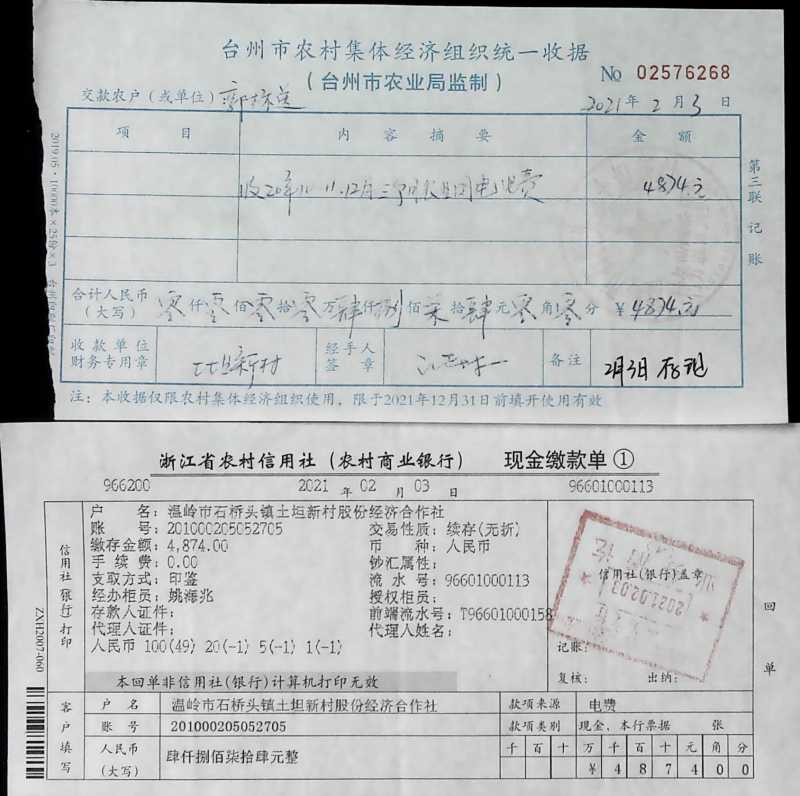 台州市农村集体经济组织统一收据
(台州市农业局监制)
No 02576268
交款农户(或单位)
2021年2月3日
项目 内容摘要 金额
4874.元
合计人民币(大写) 零仟零佰零拾零万肆仟捌佰柒拾肆元零角零分 ¥4874.元
收款单位财务专用章 土坦新村 经手人签章 备注 2月3日存现
注:本收据仅限农村集体经济组织使用,限于2021年12月31日前填开使用有效
第三联 记账
浙江省农村信用社(农村商业银行) 现金缴款单①
966200 2021年02月03日 96601000113
户名:温岭市石桥头镇土坦新村股份经济合作社
账号:201000205052705 交易性质:续存(无折)
缴存金额:4,874.00 币种:人民币
手续费:0.00 钞汇属性:
支取方式:印鉴 流水号:96601000113
经办柜员:姚海兆 授权柜员:
存款人证件: 前端流水号:T96601000158
代理人证件: 代理人姓名:
人民币 100(49) 20(-1) 5(-1) 1(-1)
本回单非信用社(银行)计算机打印无效
信用社(银行)打印
信用社(银行)盖章
2021.02.03
记账:
复核: 出纳:
回单
ZXH2007-060
客户填写
户名 温岭市石桥头镇土坦新村股份经济合作社 款项来源 电费
账号 201000205052705 款项类别 现金、本行票据 张
人民币(大写) 肆仟捌佰柒拾肆元整
千百十万千百十元角分
¥487400